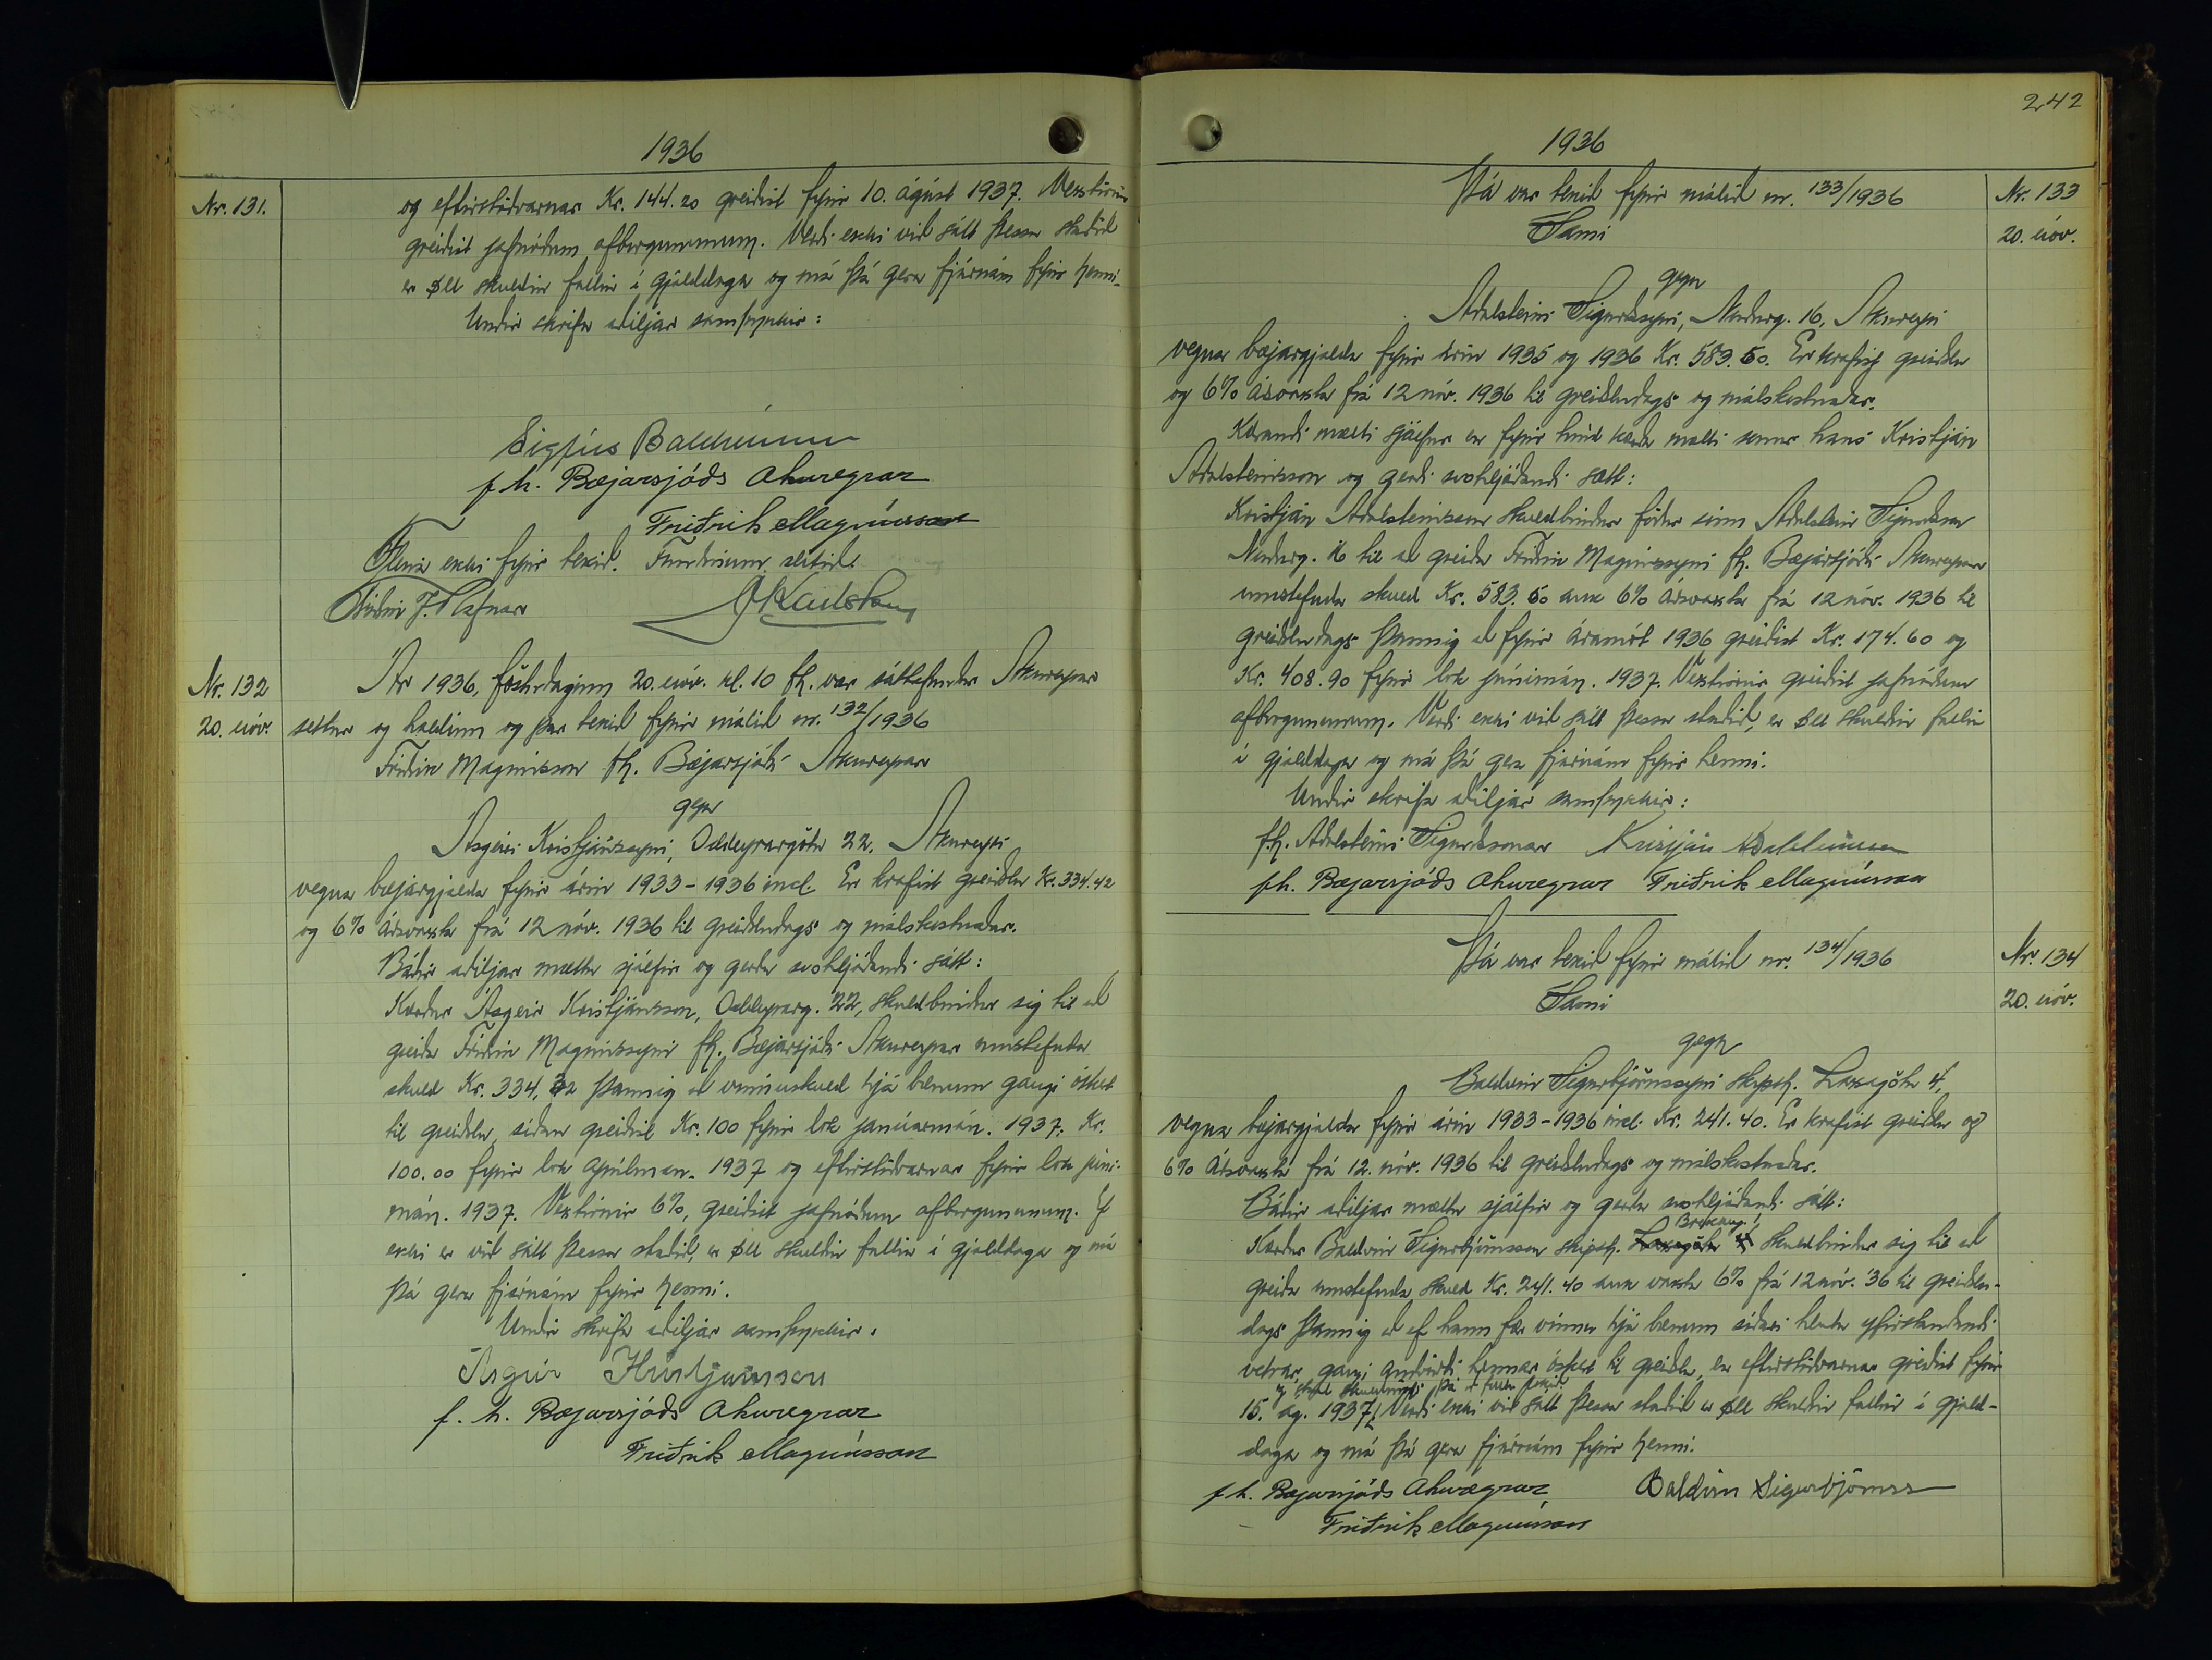 1936
Nr. 131.
og eftirstöðvarnar Kr. 144.20 greiðist fyrir 10. ágúst 1937. Vextirnir
greiðist jafnóðum afborgununum. Verði ekki við sátt þessa staðið
er öll skuldin fallin í gjalddaga og má þá gera fjárnám fyrir henni.
Undir skrifa aðiljar samþykkir:
Sigfús Baldvinsson
f.h. Bæjarsjóðs Akureyrar
Friðrik Magnússon
Fleira ekki fyrir tekið. Fundinum slitið.
Nr. 132
20. nóv.
Ár 1936, föstudaginn 20. nóv. kl. 10 fh. var sáttafundur Akureyrar
settur og haldinn og þar tekið fyrir málið nr. 132/1936
Friðrik Magnússon fh. Bæjarsjóðs Akureyrar
gegn
Ásgeiri Kristjánssyni, Oddeyrargötu 22, Akureyri
vegna bæjargjalda fyrir árin 1933-1936 incl. Er krafist greiðslu Kr. 334.42
og 6% ársvaxta frá 12 nóv. 1936 til greiðsludags og málskostnaðar.
Báðir aðiljar mættu sjálfir og gerðu svohljóðandi sátt:
Kærður Ásgeir Kristjánsson, Oddeyrarg. 22, skuldbindur sig til að
greiða Friðrik Magnússyni fh. Bæjarsjóðs Akureyrar umstefnda
skuld Kr. 334,32 þannig að vinnuskuld hjá bænum gangi óskert
til greiðslu, síðan greiðist Kr. 100 fyrir lok janúarmán. 1937, Kr.
100.00 fyrir lok aprílmán. 1937 og eftirstöðvarnar fyrir lok júní-
mán. 1937. Vextirnir 6%, greiðist jafnóðum afborgununum. Ef
ekki er við sátt þessa staðið, er öll skuldin fallin í gjalddaga og má
þá gera fjárnám fyrir henni.
Undir skrifa aðiljar samþykkir.
Ásgeir Kristjánsson
f. h. Bæjarsjóðs Akureyrar
Friðrik Magnússon
242
1936
Nr. 133
20. nóv.
Þá var tekið fyrir málið nr. 133/1936
Sami
gegn
Aðalsteini Sigurðssyni, Norðurg. 16, Akureyri
vegna bæjargjalda fyrir árin 1935 og 1936 Kr. 583.50. Er krafist greiðslu
og 6% ársvaxta frá 12 nóv. 1936 til greiðsludags og málskostnaðar.
Kærandi mætti sjálfur en fyrir hönd kærða mætti sonur hans Kristján
Aðalsteinsson og gerði svohljóðandi sátt:
Kristján Aðalsteinsson skuldbindur föður sinn Aðalstein Sigurðsson
Norðurg. 16 til að greiða Friðrik Magnússyni fh. Bæjarsjóðs Akureyrar
umstefnda skuld Kr. 583.50 auk 6% ársvaxta frá 12 nóv. 1936 til
greiðsludags þannig að fyrir áramót 1936 greiðist Kr. 174.60 og
Kr. 408.90 fyrir lok júnímán. 1937. Vextirnir greiðist jafnóðum
afborgununum. Verði ekki við sátt þessa staðið, er öll skuldin fallin
í gjalddaga og má þá gera fjárnám fyrir henni.
Undir skrifa aðiljar samþykkir:
fh. Aðalsteins Sigurðssonar Kristján Aðalsteinsson
fh. Bæjarsjóðs Akureyrar Friðrik Magnússon
Nr. 134
20. nóv.
Þá var tekið fyrir málið nr. 134/1936
Sami
gegn
Baldvin Sigurbjörnssyni skipstj. Laxagötu 4,
vegna bæjargjalda fyrir árin 1933-1936 incl. Kr. 241.40. Er krafist greiðslu og
6% ársvaxta frá 12. nóv. 1936 til greiðsludags og málskostnaðar.
Báðir aðiljar mættu sjálfir og gerðu svohljóðandi sátt:
Kærður Baldvin Sigurbjörnsson skipstj. Laxagötu 4 skuldbindur sig til að
greiða umstefnda skuld Kr. 241.40 auk vaxta 6% frá 12 nóv. '36 til greiðslu-
dags þannig að ef hann fær vinnu hjá bænum síðari hluta yfirstandandi
vetrar, gangi andvirði hennar óskert til greiðslu, en eftirstöðvarnar greiðist fyrir
15. ág. 1937. Verði ekki við sátt þessa staðið er öll skuldin fallin í gjald-
daga og má þá gera fjárnám fyrir henni.
f.h. Bæjarsjóðs Akureyrar, Baldvin Sigurbjörnss
Friðrik Magnússon